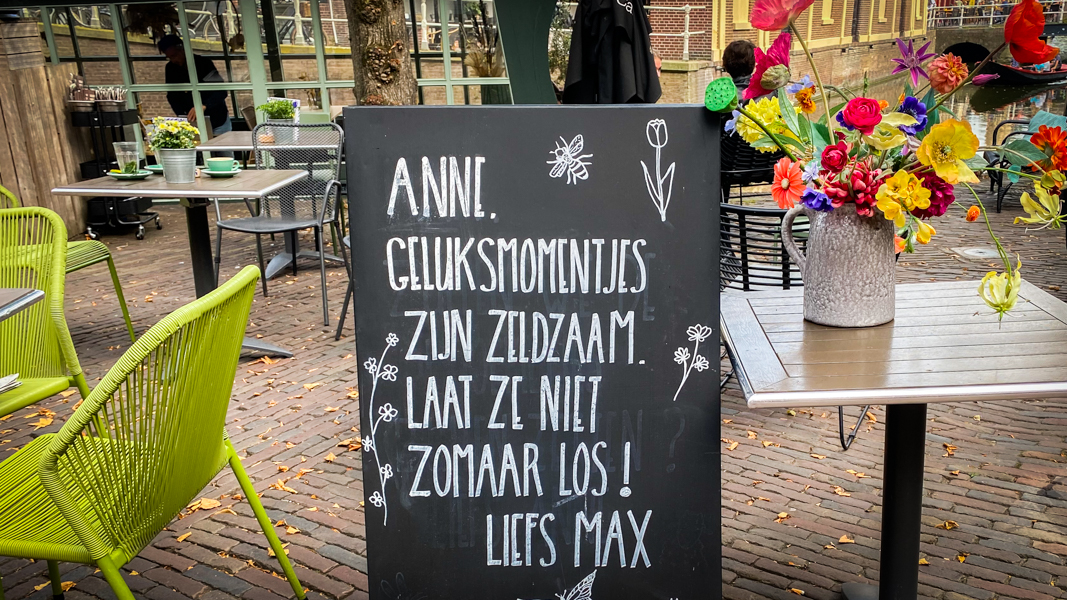 ANNE,
GELUKSMOMENTJES
ZIJN ZELDZAAM.
LAAT ZE NIET
ZOMAAR LOS!
LIEFS MAX